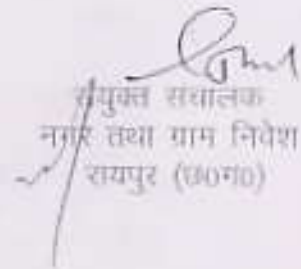 संयुक्त संचालक
नगर तथा ग्राम निवेश
रायपुर (छ0ग0)